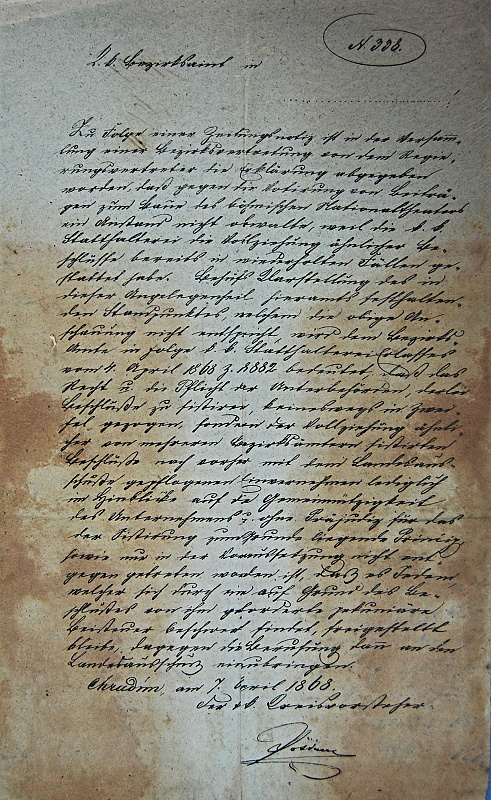 N. 338.
K. k. Bezirksamt in
Zu Folge einer Zeitungsnotiz ist in der Versamm-
lung einer Bezirksvertretung von dem Regie-
rungsvertreter die Erklärung abgegeben
worden, daß gegen die Votirung von Beiträ-
gen zum Baue des böhmischen Nationaltheaters
ein Anstand nicht obwalte, weil die k. k.
Statthalterei die Vollziehung ähnlicher Be-
schlüsse bereits in wiederholten Fällen ge-
stattet habe. Behufs Klarstellung des in
dieser Angelegenheit hieramts festhalten-
den Standpunktes welchem die obige An-
schauung nicht entspricht wird dem Bezirks-
Amte in Folge k. k. Statthalterei Erlasses
vom 4. April 1868 Z. 5882 bedeutet, daß das
Recht u. die Pflicht der Unterbehörden, derlei
Beschlüße zu sistiren, keineswegs in Zwei-
fel gezogen, sondern der Vollziehung ähnli-
cher von mehreren Bezirksämtern sistirten
Beschlüße nach vorher mit dem Landesaus-
schuße gepflogenen Einvernehmen lediglich
im Hinblicke auf die Gemeinnützigkeit
des Unternehmens u. ohne Präjudiz für das
der Sistirung zum Grunde liegende Prinzip
sowie nur in der Voraussetzung nicht ent-
gegen getreten worden ist, daß es Jedem
welcher sich durch die auf Grund des Be-
schlußes von ihm geforderte pekuniäre
Beisteuer beschwert findet, freigestellt
bleibe, dagegen die Berufung an den
Landesausschuß einzubringen.
Chrudim, am 7. April 1868.
Der k. k. Kreisvorsteher.